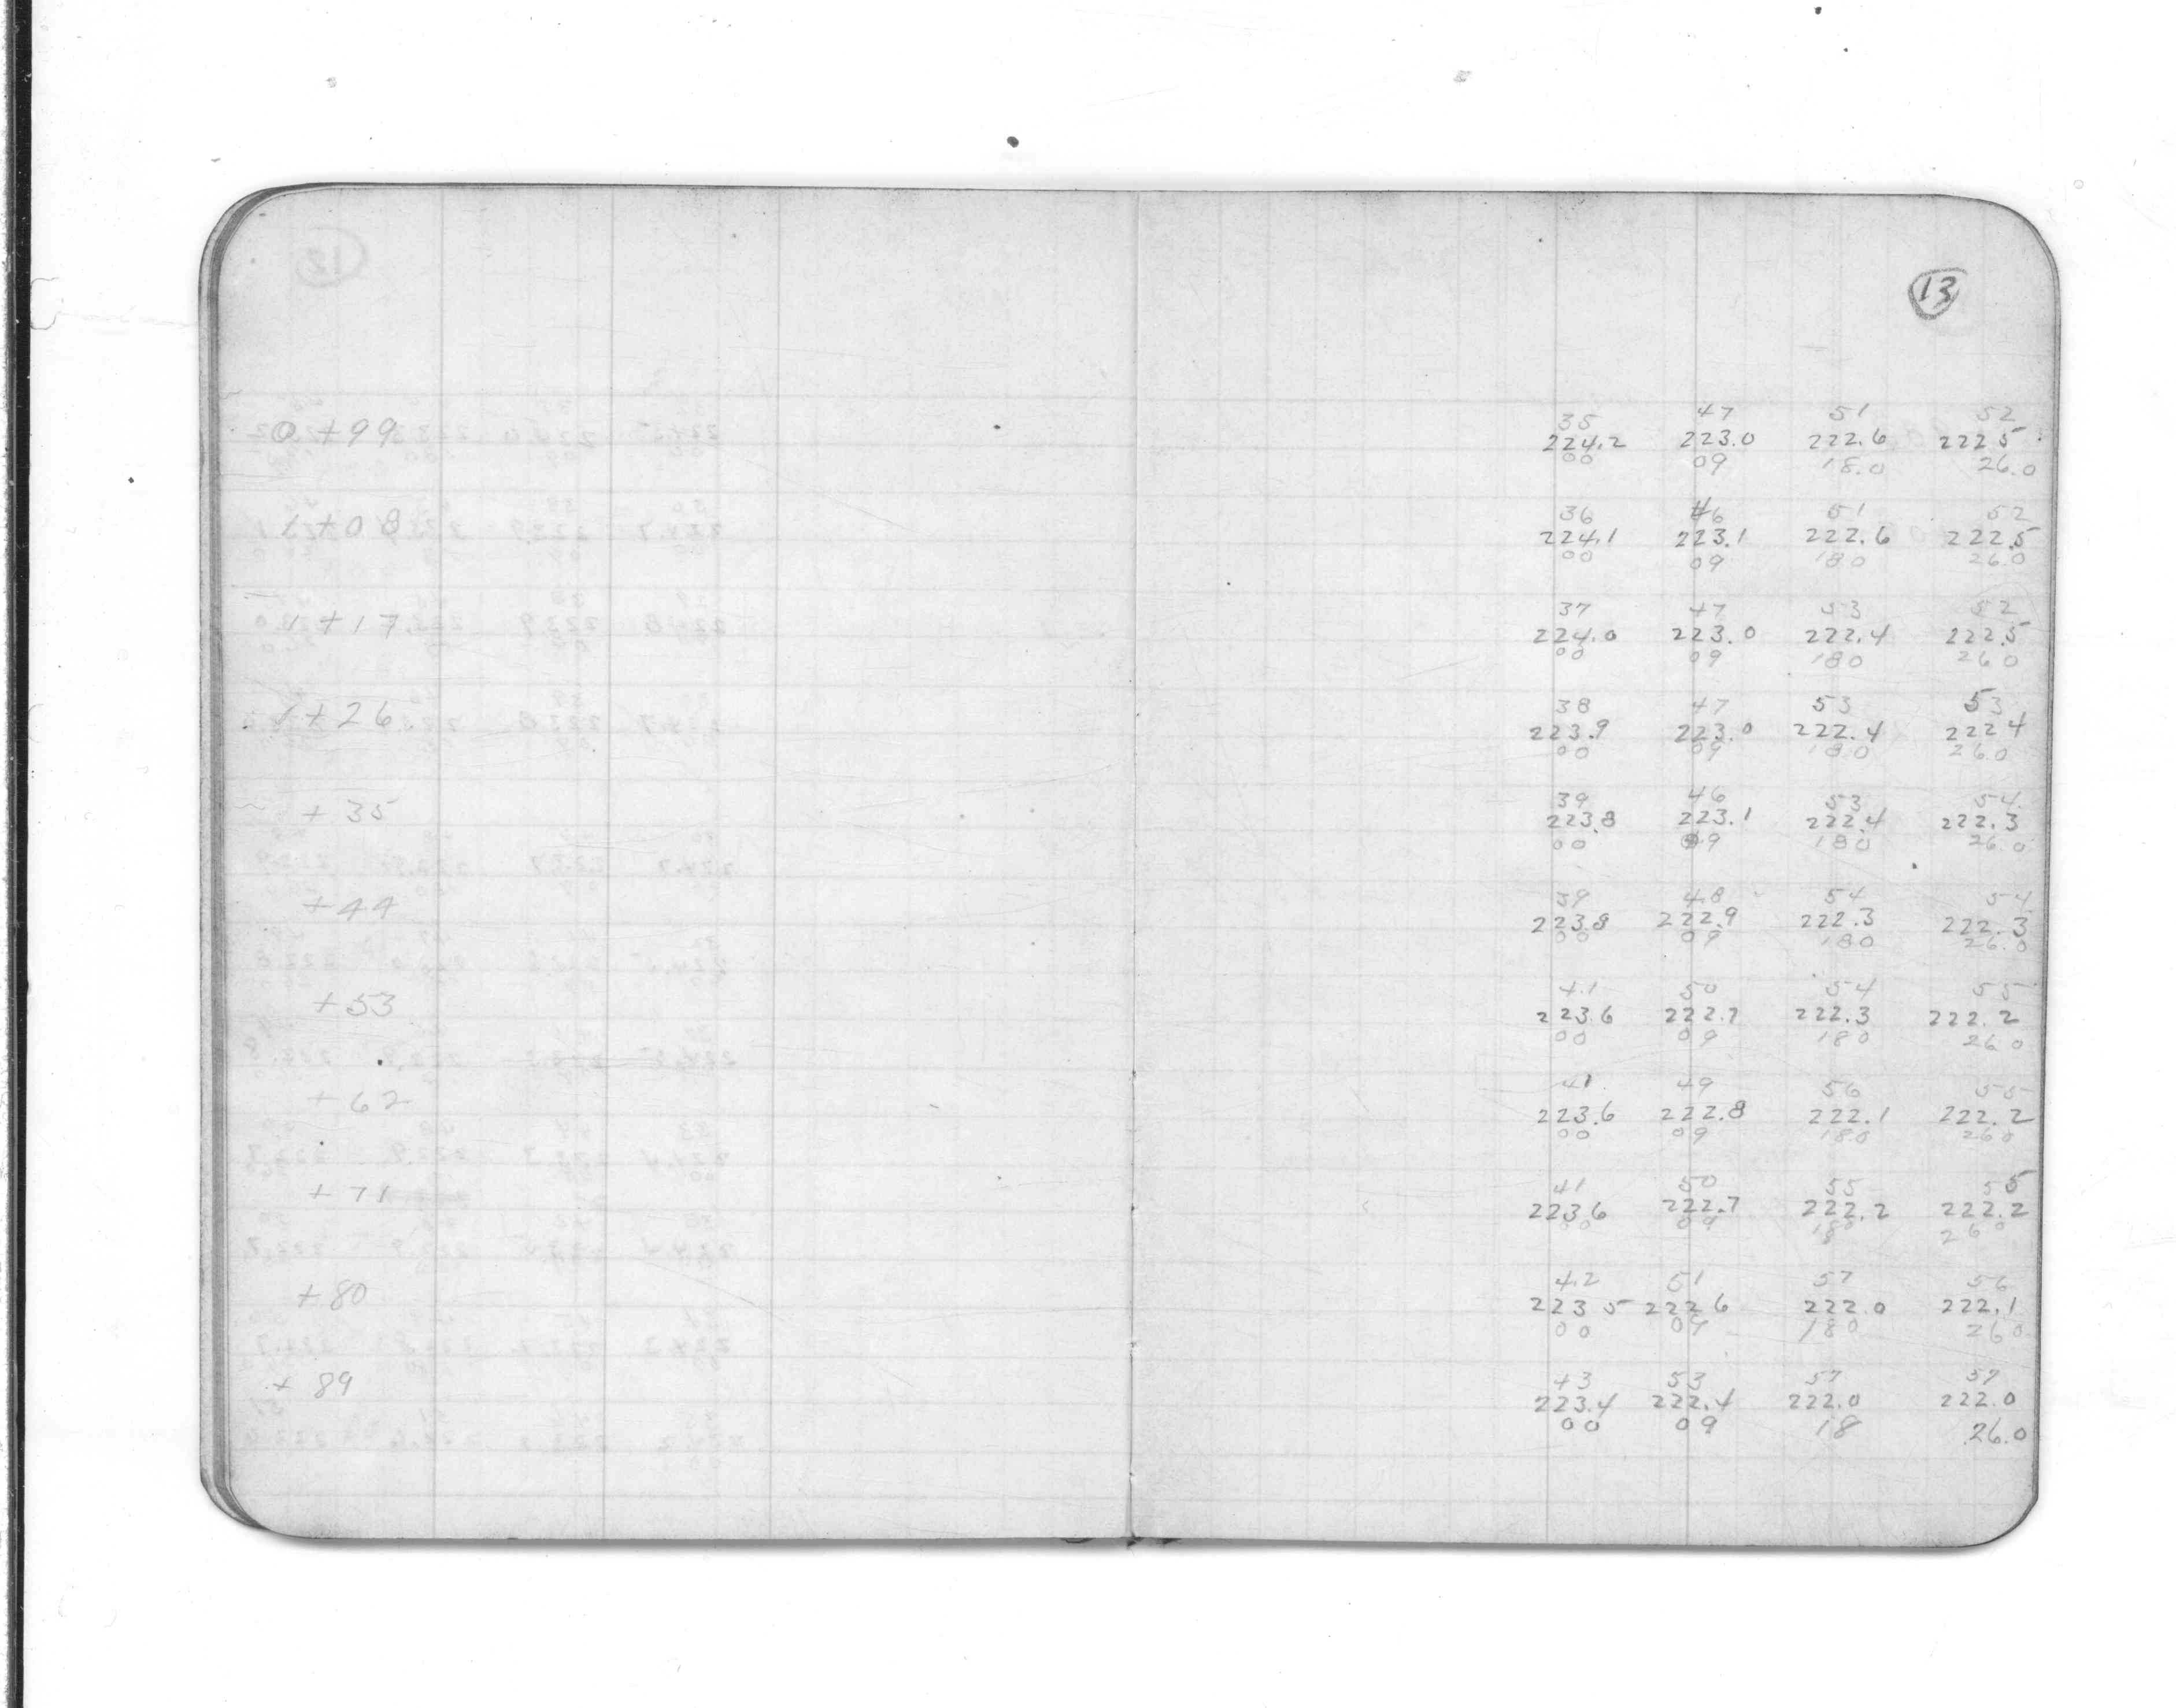 13
35 47 51 52
0+99 224.2 223.0 222.6 222 5
00 09 18.0 26.0
36 46 51 52
1+08 224.1 223.1 222.6 222.5
00 09 180 26.0
37 47 53 52
1+17 224.0 223.0 222.4 222.5
00 09 180 260
38 47 53 53
1+26 223.9 223.0 222.4 222 4
00 09 180 26.0
39 46 53 54
+35 223.8 223.1 222.4 222.3
00 09 180 26.0
39 48 54 54
+44 223.8 222.9 222.3 222.3
00 09 180 26.0
41 50 54 55
+53 223.6 222.7 222.3 222.2
00 09 180 260
41 49 56 55
+62 223.6 222.8 222.1 222.2
00 09 180 260
41 50 55 55
+71 223 6 222.7 222.2 222.2
00 09 180 260
42 51 57 56
+80 223 5 222 6 222.0 222.1
00 09 180 260
43 53 57 57
+89 223.4 222.4 222.0 222.0
00 09 18 26.0